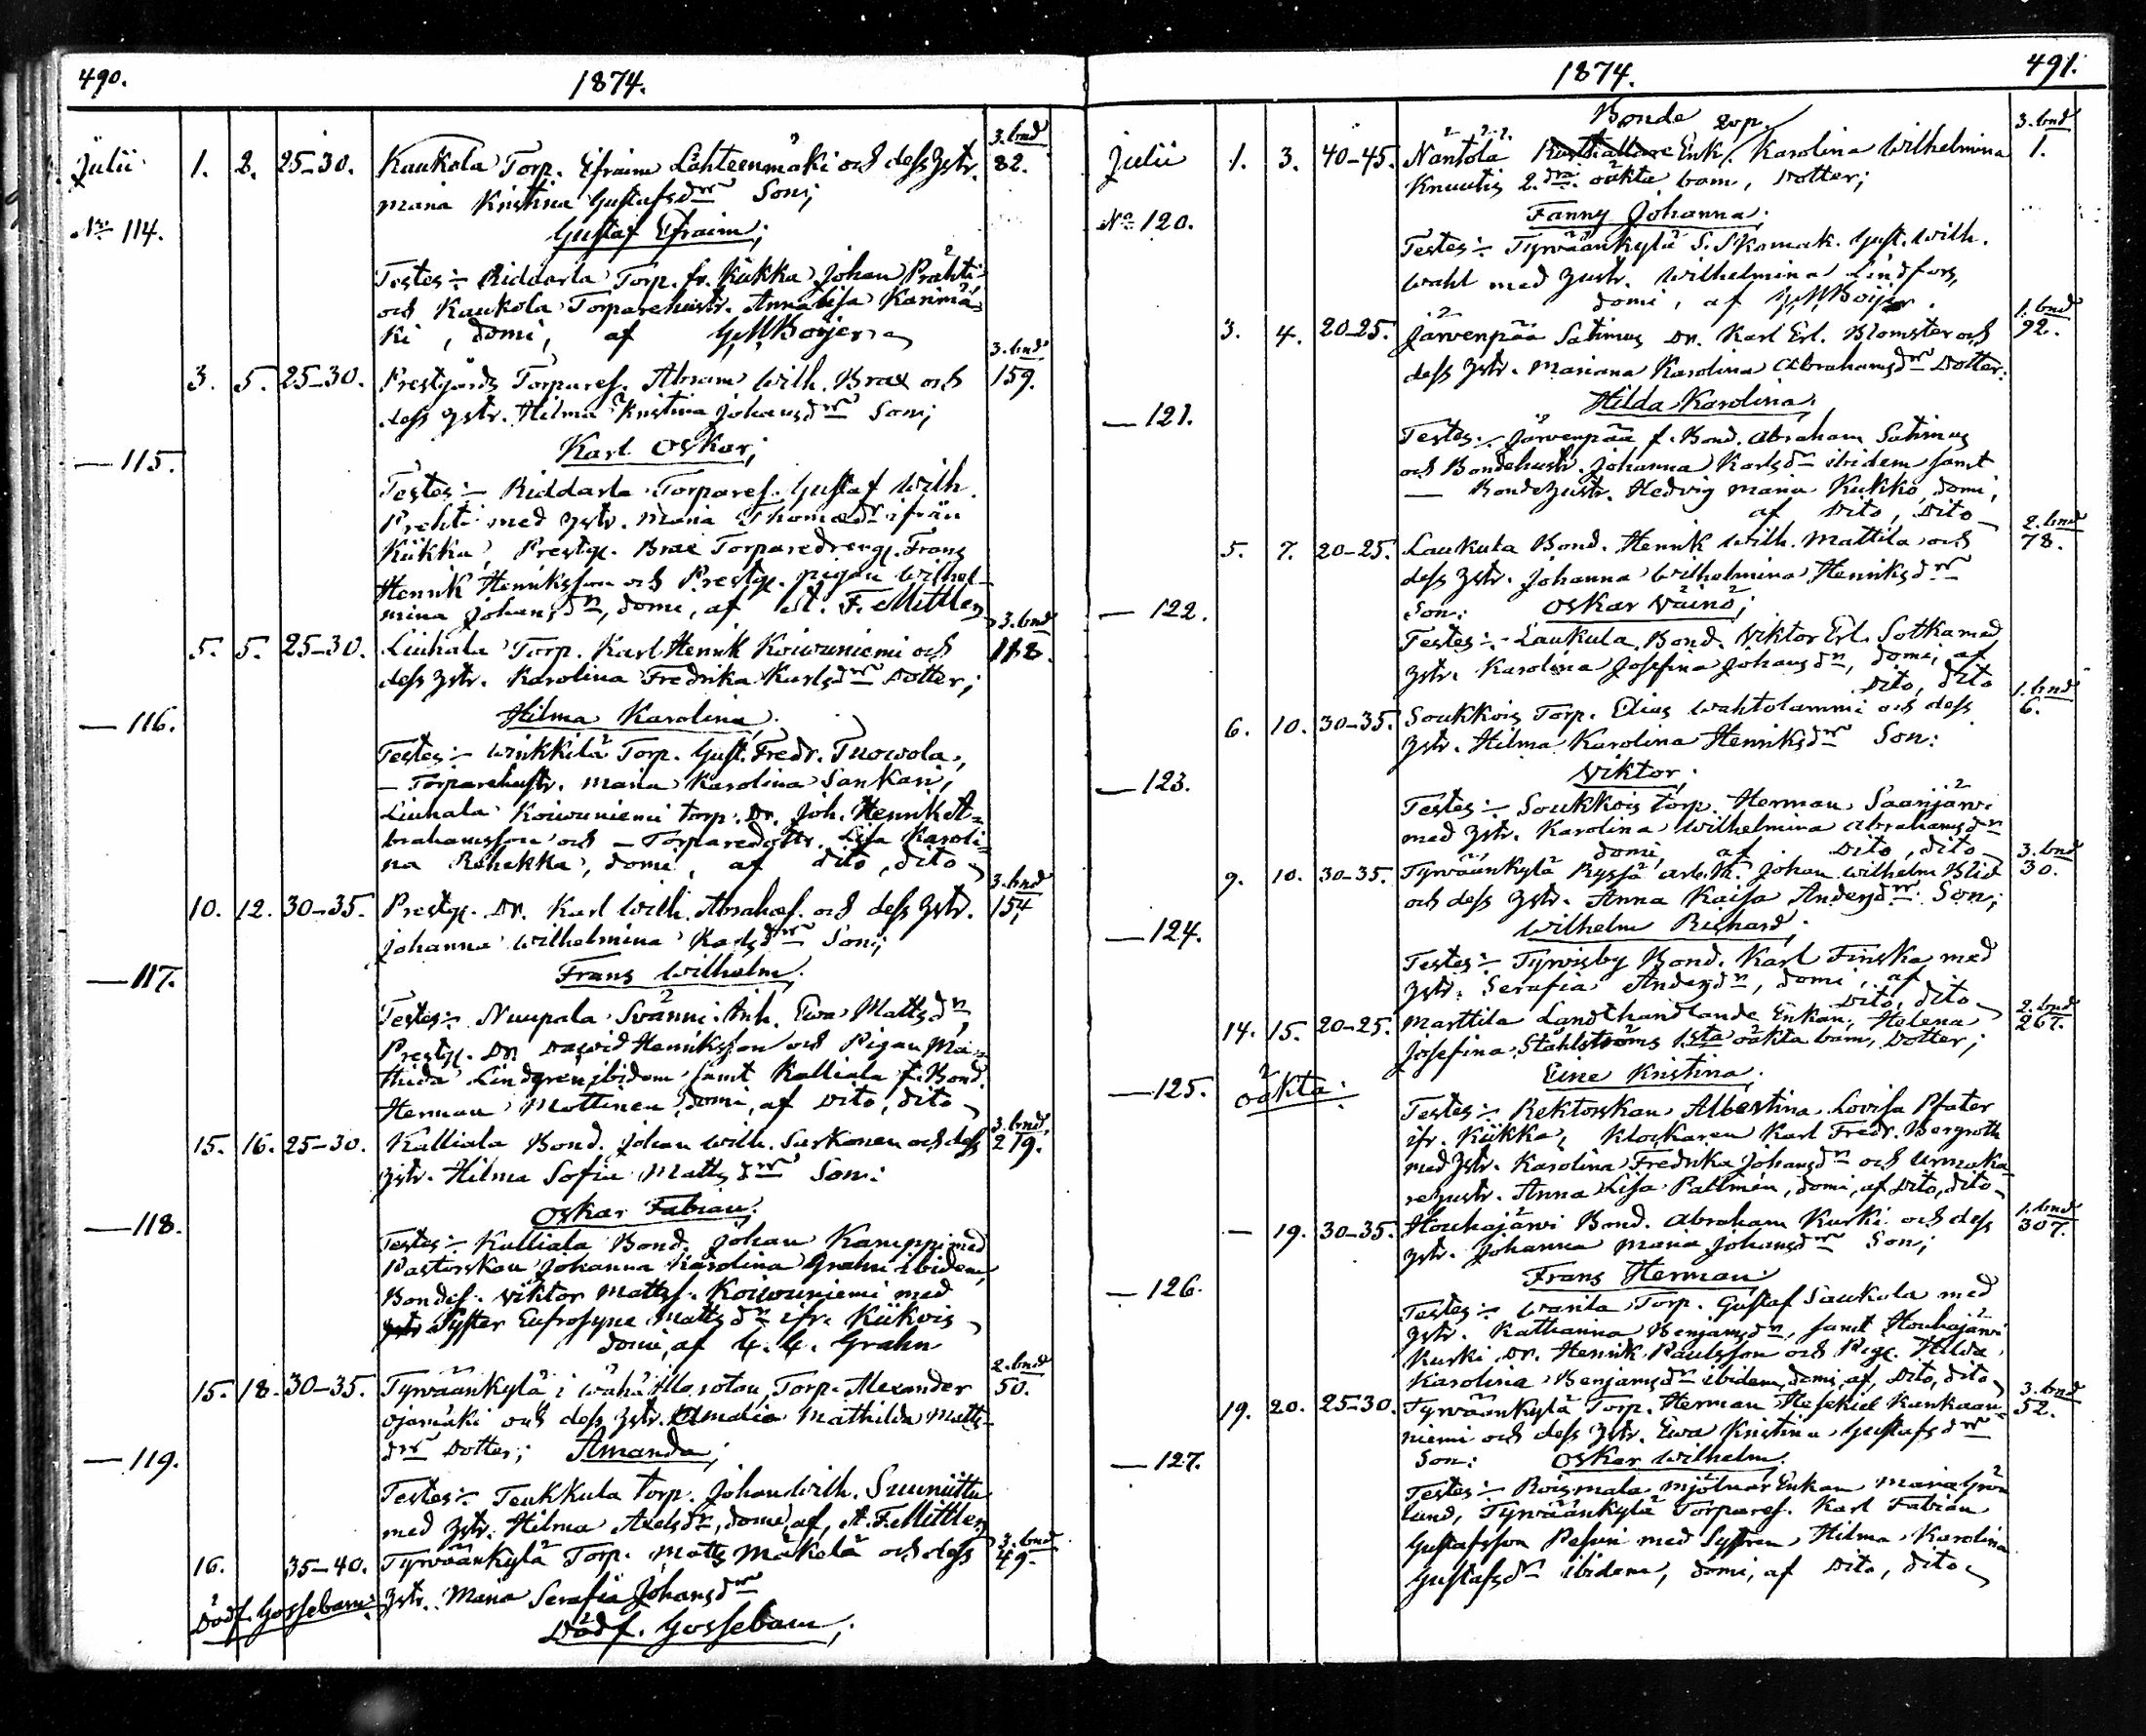 490. 1874.
3. bnd
Julii 1. 2. 25-30. Kaukola Torp. Efraim Lähteenmäki och dess hstr. 82.
Maria Kristina Gustafsdr Son;
No 114. Gustaf Efraim;
Testes:- Riddarla Torp. fr. Kiikka Johan Prähti
och Kaukola Torparehustr. Anna Lisa Karimä-
ki, domi, af G. W. Böijer
3. bnd
3. 5. 25-30. Prestgårds Torparef. Abram Wilh. Brax och 159.
dess hstr. Hilma Kristina Johansdr Son;
-115. Karl Oskar;
Testes:- Riddarla Torparef. Gustaf Wilh.
Prehti med hstr. Maria Thomasdr ifrån
Kiikka, Prestg. Brax Torparedreng. Frans
Henrik Henriksson och Prestg. pigan Wilhel-
mina Johansdr, domi, af A. F. Mittler
3. bnd
5. 5. 25-30. Liuhala Torp. Karl Henrik Koivuniemi och 118.
dess hstr. Karolina Fredrika Karlsdr Dotter;
-116. Hilma Karolina;
Testes:- Winkkilä Torp. Gust. Fredr. Tuowola,
- Torparehustr. Maria Karolina Sankari,
Liuhala Koivuniemi torp. Dr. Joh. Henrik A-
brahamsson och - Torparedottr. Lisa Karoli-
na Rehekka, domi, af dito, dito
3. bnd
10. 12. 30-35. Prestg. Dr. Karl Wilh. Abrahaf. och dess hstr. 154.
Johanna Wilhelmina Karlsdr Son;
-117. Frans Wilhelm.
Testes:- Nuupala Svänni Enk. Ewa Mattsdr,
Prestg. Dr. Dawid Henriksson och Pigan Ma-
thida Lindgren ibidem samt Kalliala f. Bond.
Herman Mottinen, domi, af Dito, dito
3. bnd
15. 16. 25-30. Kalliala Bond. Johan Wilh. Surkonen och dess 219.
hstr. Hilma Sofia Mattsdr Son:
-118. Oskar Fabian;
Testes:- Kalliala Bond. Johan Kamppi med
Pastorskan Johanna Karolina Grahn ibidem,
Bondes. Viktor Mattsf. Koivuniemi med
Syster Eufrosyne Mattsdr ifr. Kiikois
domi, af C. G. Grahn
2. bnd
15. 18. 30-35. Tyrväänkylä i Wähä Torp. Alexander 50.
Ojamäki och dess hstr. Amalia Mathilda Matts-
dr Dotter; Amanda;
-119.
Testes:- Teukkula torp. Johan Wilh. Suuniittu
med hstr. Hilma Axelsdr, domi, af, A. F. Mittler
3. bnd
16. 35-40. Tyrväänkylä Torp. Matts Mäkelä och dess 49.
Dödf. Gossebarn: hstr. Maria Serafia Johansdr
Dödf. Gossebarn;
1874. 491.
Bonde 3. bnd
Julii 1. 3. 40-45. Nantola Rusthållare Enk. Karolina Wilhelmina 1.
Knuutis 2.dra oäkta barn, Dotter;
No 120. Fanny Johanna;
Testes:- Tyrväänkylä S. Skomak. Gust. Wilh.
Wahl med hustr. Wilhelmina Lindfors,
domi, af G. W. Böijer.
1. bnd
3. 4. 20-25. Järvenpää Satimus Dr. Karl Erl. Blomster och 92.
dess hstr. Mariana Karolina Abrahamsdr Dotter:
-121. Hilda Karolina;
Testes:- Järvenpää f. Bond. Abraham Satimus
och Bondehustr. Johanna Karlsdr ibidem samt
- Bondehustr. Hedvig Maria Kukko, domi,
af Dito, dito
2. bnd
5. 7. 20-25. Laukula Bond. Henrik Wilh. Mattila och 78.
dess hstr. Johanna Wilhelmina Henriksdr
-122. Son: Oskar Väinö;
Testes:- Laukula Bond. Viktor Erl. Sotka med
hstr. Karolina Josefina Johansdr, domi, af
Dito, dito
1. bnd
6. 10. 30-35. Soukkois Torp. Elias Wahtolammi och dess 6.
hstr. Hilma Karolina Henriksdr Son:
-123. Viktor;
Testes:- Soukkois torp. Herman Saarijärvi
med hstr. Karolina Wilhelmina Abrahamsdr
domi, af Dito, dito
3. bnd
9. 10. 30-35. Tyrväänkylä Ryssä arb. K. Johan Wilhelm Blid 30.
och dess hstr. Anna Kaisa Andersdr Son;
-124. Wilhelm Richard;
Testes:- Tyrvisby Bond. Karl Finska med
hstr. Serafia Andersdr, domi, af
Dito, dito
2. bnd
14. 15. 20-25. Marttila Landthandlande Enkan, Helena 267.
Josefina Ståhlströms 1sta oäkta barn, Dotter;
-125. oäkta: Eine Kristina;
Testes:- Rektorskan Albertina Lovisa Pfater
ifr. Kiikka, Klockaren Karl Fredr. Bergroth
med hstr. Karolina Fredrika Johansdr och Urmaka-
rehustr. Anna Lisa Pallmén, domi, af Dito, dito
1. bnd
- 19. 30-35. Houhajärvi Bond. Abraham Kurki och dess 307.
hstr. Johanna Maria Johansdr Son;
-126. Frans Herman;
Testes:- Warila Torp. Gustaf Saukola med
hstr. Katharina Benjamsdr, samt Houhajärvi
Kurki Dr. Henrik Paulsson och Pig. Hilda
Karolina Benjamsdr ibidem, domi, af Dito, dito
3. bnd
19. 20. 25-30. Tyrväänkylä Torp. Herman Hesekiel Kankaan- 52.
niemi och dess hstr. Ewa Kristina Gustafsdr
-127. Son: Oskar Wilhelm;
Testes:- Roismala mjölnar Enkan Maria Grön-
lund, Tyrväänkylä Torparef. Karl Fabian
Gustafsson Pesuri med Systren Hilma Karolina
Gustafsdr ibidem, domi, af Dito, dito